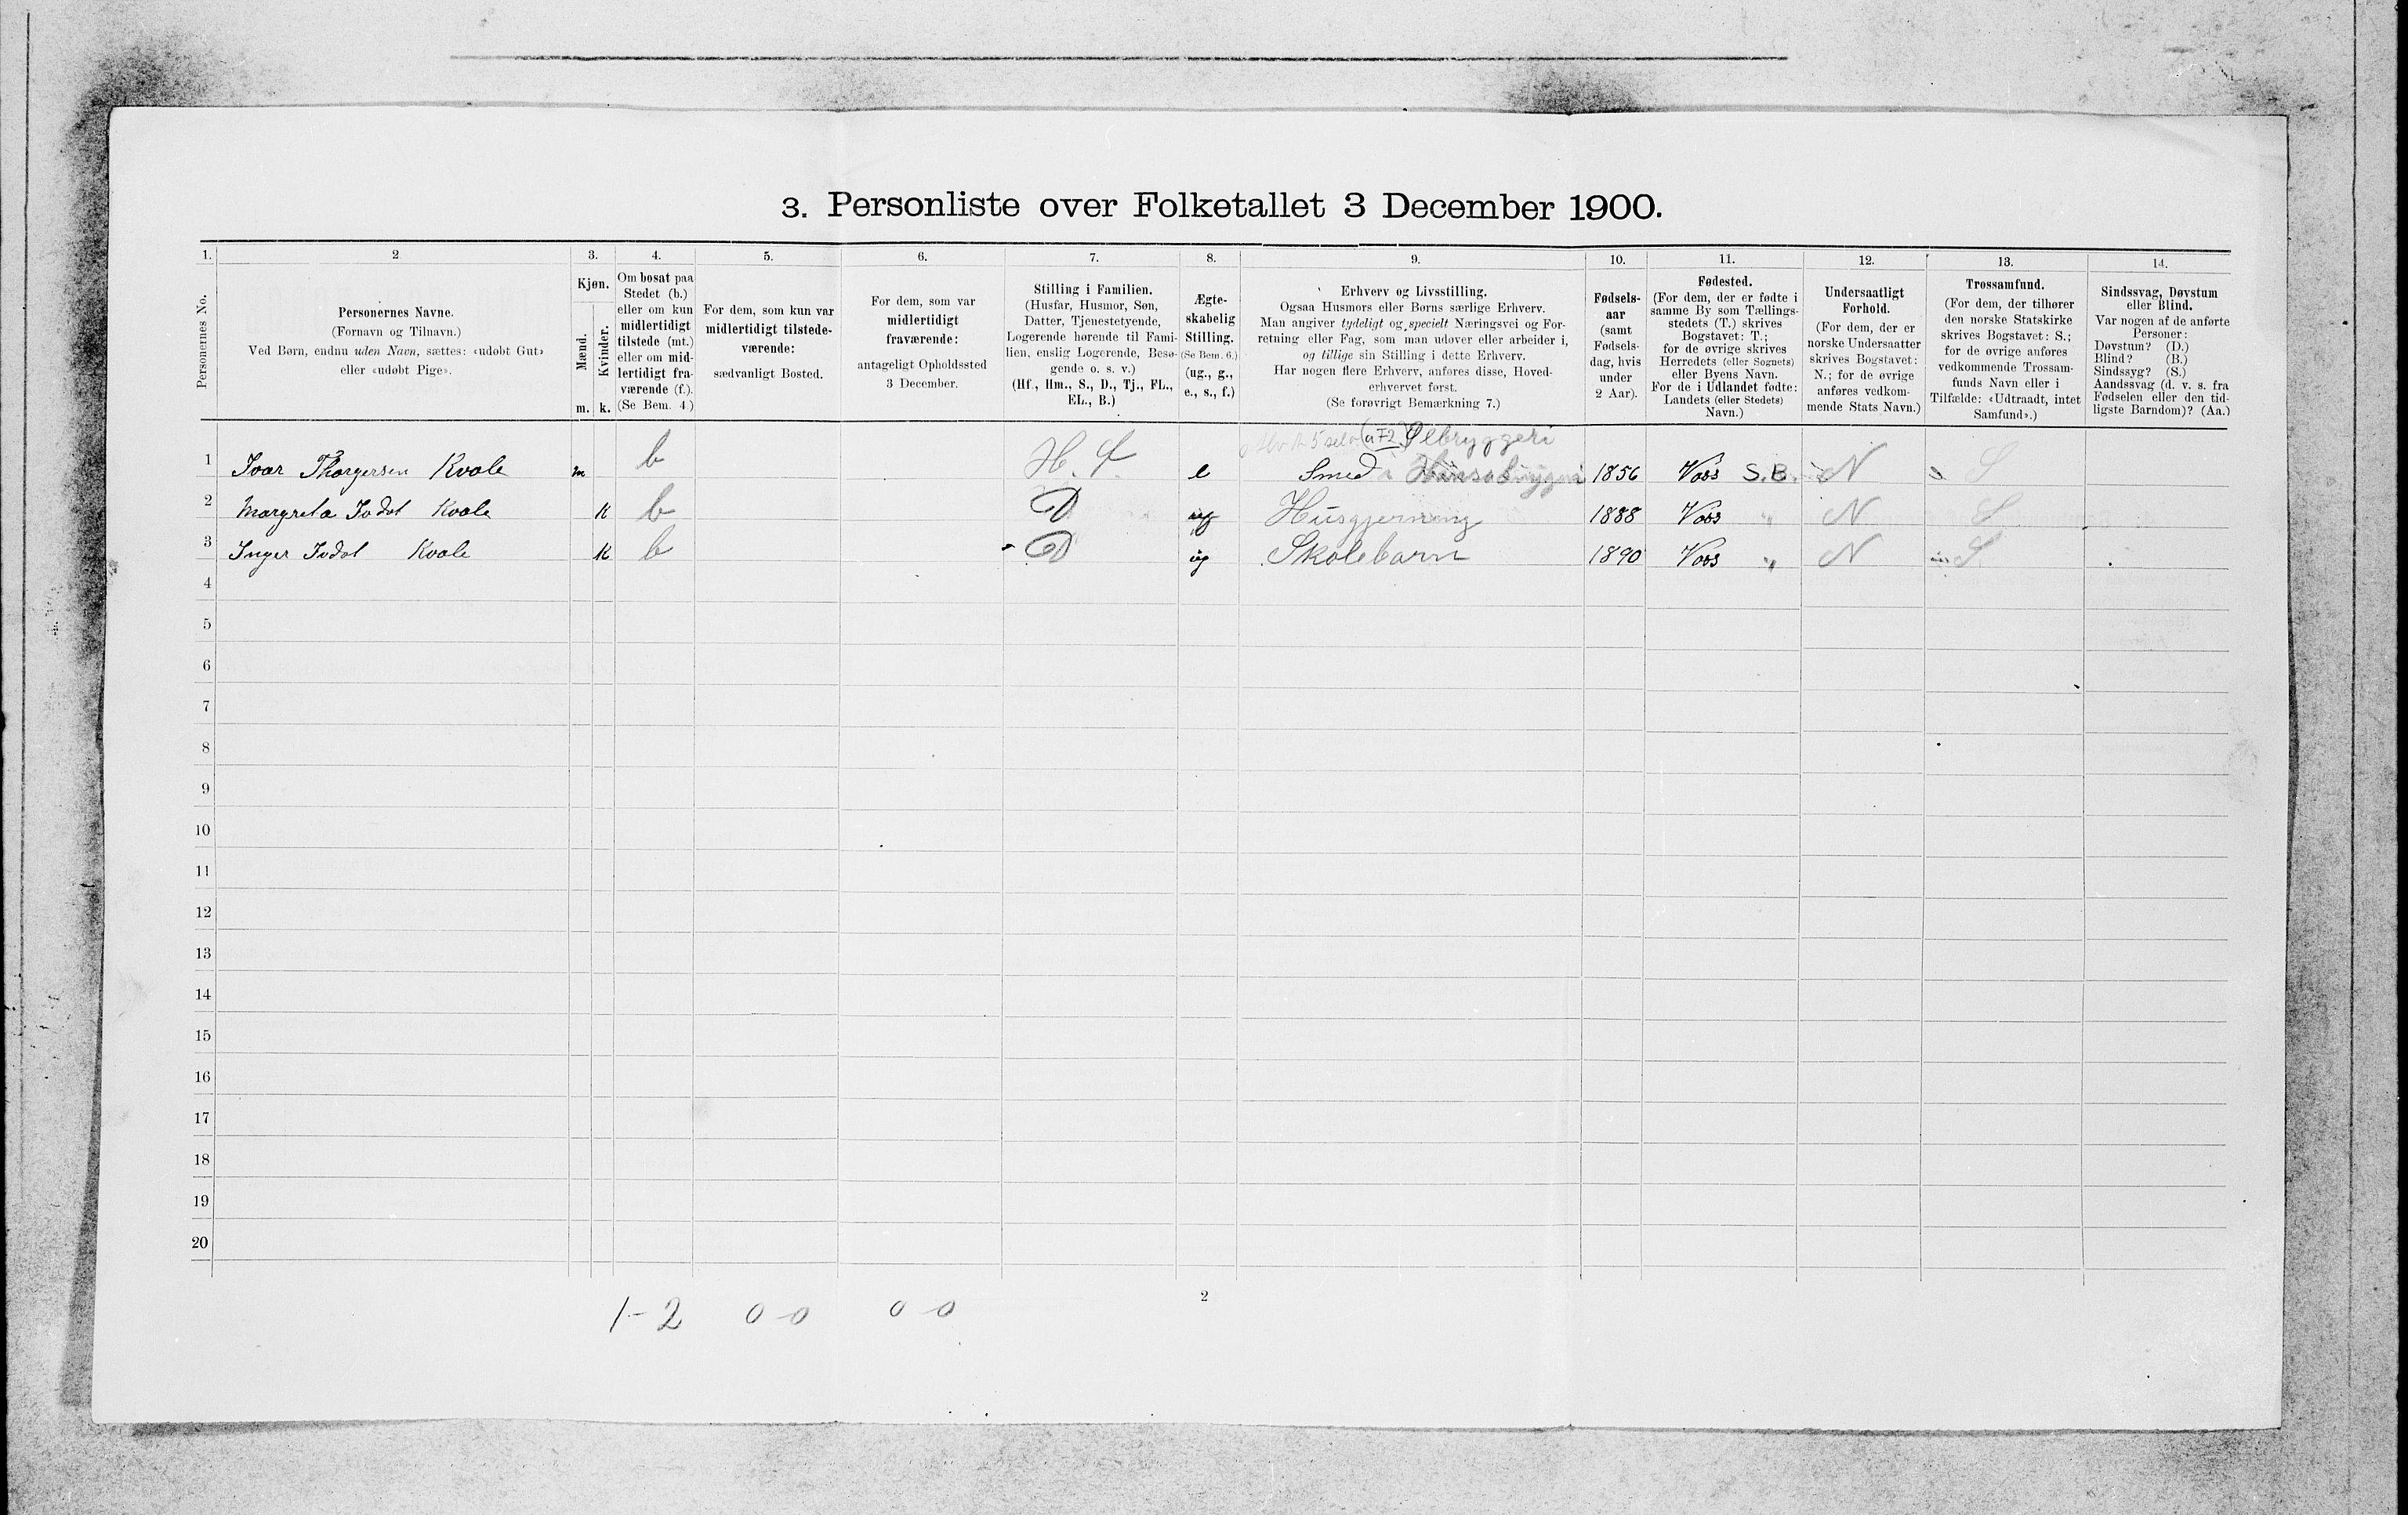 3. Personliste over Folketallet 3 December 1900.
1. 2 3. 4. 5. 6. 7. 8. 9. 10. 11. 12. 13. 14.
Personernes No.
Personernes Navne.
(Fornavn og Tilnavn.)
Ved Børn, endnu uden Navn, sættes: «udøbt Gut»
eller «udøbt Pige».
Kjøn.
Mænd.
Kvinder.
m. k.
Om bosat paa
Stedet (b.)
eller om kun
midlertidigt
tilstede (mt.)
eller om mid-
lertidigt fra-
værende (f.).
(Se Bem. 4.)
For dem, som kun var
midlertidigt tilstede-
værende:
sædvanligt Bosted.
For dem, som var
midlertidigt
fraværende:
antageligt Opholdssted
3 December.
Stilling i Familien.
(Husfar, Husmor, Søn,
Datter, Tjenestetyende,
Logerende hørende til Fami-
lien, enslig Logerende, Besø-
gende o. s. v.)
(Hf., Hm., S., D., Tj., FL.,
EL., B.)
Ægte-
skabelig
Stilling.
(Se Bem. 6.)
(ug., g.,
e., s., f.)
Erhverv og Livsstilling.
Ogsaa Husmors eller Børns særlige Erhverv.
Man angiver tydeligt og specielt Næringsvei og For-
retning eller Fag, som man udøver eller arbeider i,
og tillige sin Stilling i dette Erhverv.
Har nogen flere Erhverv, anføres disse, Hoved-
erhvervet først.
(Se forøvrigt Bemærkning 7.)
Fødsels-
aar
(samt
Fødsels-
dag, hvis
under
2 Aar).
Fødested.
(For dem, der er fødte i
samme By som Tællings-
stedets (T.) skrives
Bogstavet: T.;
for de øvrige skrives
Herredets (eller Sognets)
eller Byens Navn.
For de i Udlandet fødte:
Landets (eller Stedets)
Navn.)
Undersaatligt
Forhold.
(For dem, der er
norske Undersaatter
skrives Bogstavet:
N.; for de øvrige
anføres vedkom-
mende Stats Navn.)
Trossamfund.
(For dem, der tilhører
den norske Statskirke
skrives Bogstavet: S.;
for de øvrige anføres
vedkommende Trossam-
funds Navn eller i
Tilfælde: «Udtraadt, intet
Samfund».)
Sindssvag, Døvstum
eller Blind.
Var nogen af de anførte
Personer:
Døvstum? (D.)
Blind? (B.)
Sindssyg? (S.)
Aandssvag (d. v. s. fra
Fødselen eller den tid-
ligste Barndom)? (Aa.)
(a F2) Ølbryggeri
1 Ivar Thorgersen Kvale m b H. F e Smed 1856 Voss S.B. N S
2 Margreta Ivdot Kvale K b D ug Husgjerning 1888 Voss " N S
3 Inger Ivdot Kvale K b D ug Skolebarn 1890 Voss " N S
4
5
6
7
8
9
10
11
12
13
14
15
16
17
18
19
20
2
1-2 0-0 0-0